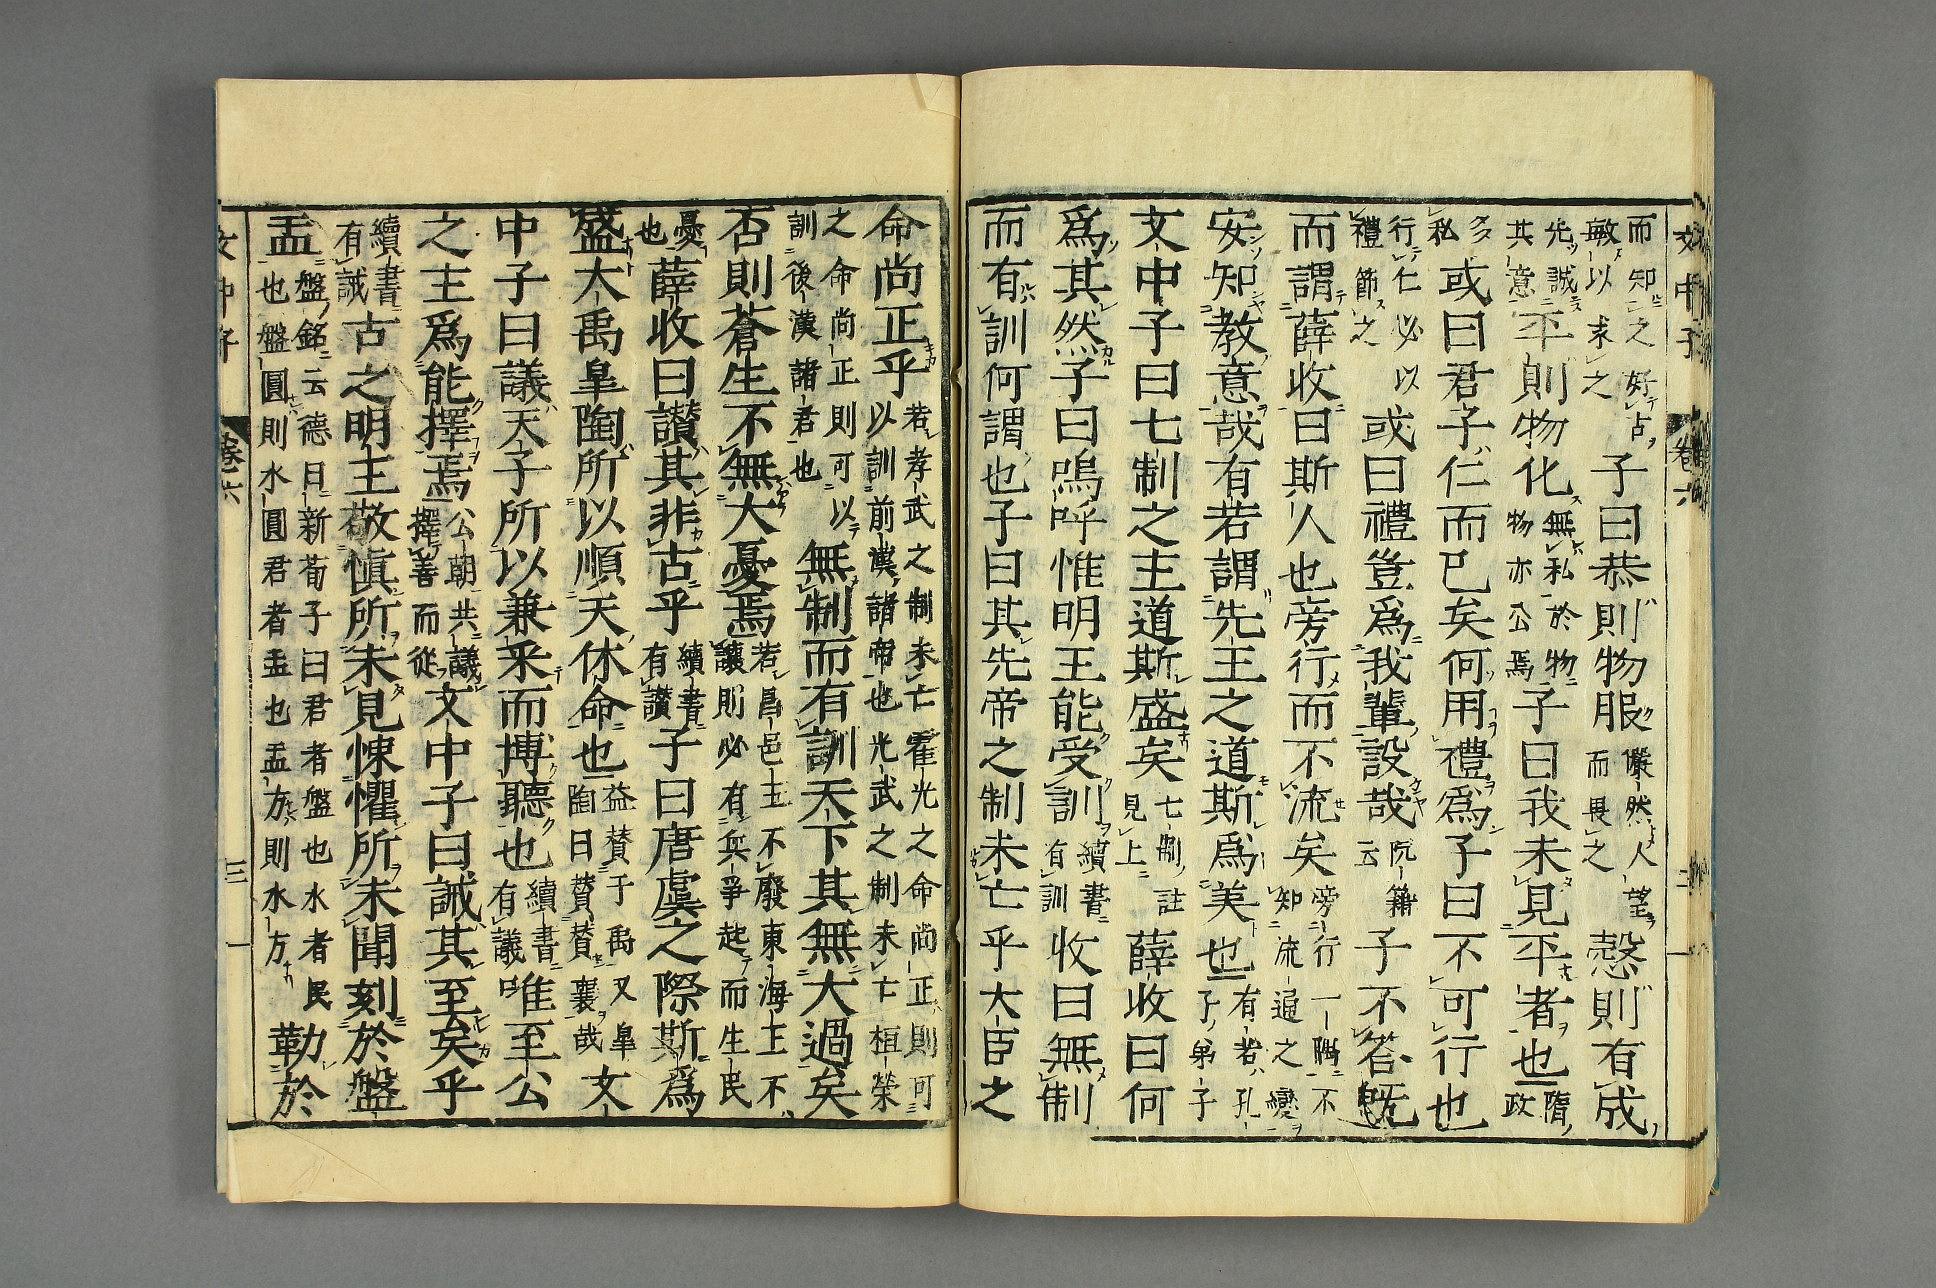 文中子 卷六 二
而知之好古敏以求之子曰恭則物服儼然人望而畏之慤則有成
先誠其意平則物化無私於物物亦公焉子曰我未見平者也隋政
多私或曰君子仁而已矣何用禮爲子曰不可行也
行仁必以禮節之或曰禮豈爲我輩設哉阮籍云子不答旣
而謂薛收曰斯人也旁行而不流矣旁行一隅不知流通之變
安知教意哉有若謂先王之道斯爲美也有若孔子弟子
文中子曰七制之主道斯盛矣七制註見上薛收曰何
爲其然子曰嗚呼惟明王能受訓續書有訓收曰無制
而有訓何謂也子曰其先帝之制未亡乎大臣之
命尚正乎若孝武之制未亡霍光之命尚正則可以訓前漢諸帝也光武之制未亡桓榮
之命尚正則可以訓後漢諸君也無制而有訓天下其無大過矣
否則蒼生不無大憂焉若昌邑王不廢東海王不讓則必有兵爭起而生民
憂也薛收曰讚其非古乎續書有讚子曰唐虞之際斯爲
盛大禹皐陶所以順天休命也益賛于禹又皐陶曰賛賛襄哉文
中子曰議天子所以兼采而博聽也續書有議唯至公
之主爲能擇焉公朝共議擇善而從文中子曰誡其至矣乎
續書有誡古之明王敬愼所未見悚懼所未聞刻於盤
盂盤銘云德日新荀子曰君者盤也水者民也盤圓則水圓君者盂也盂方則水方勒於
文中子 卷六 三